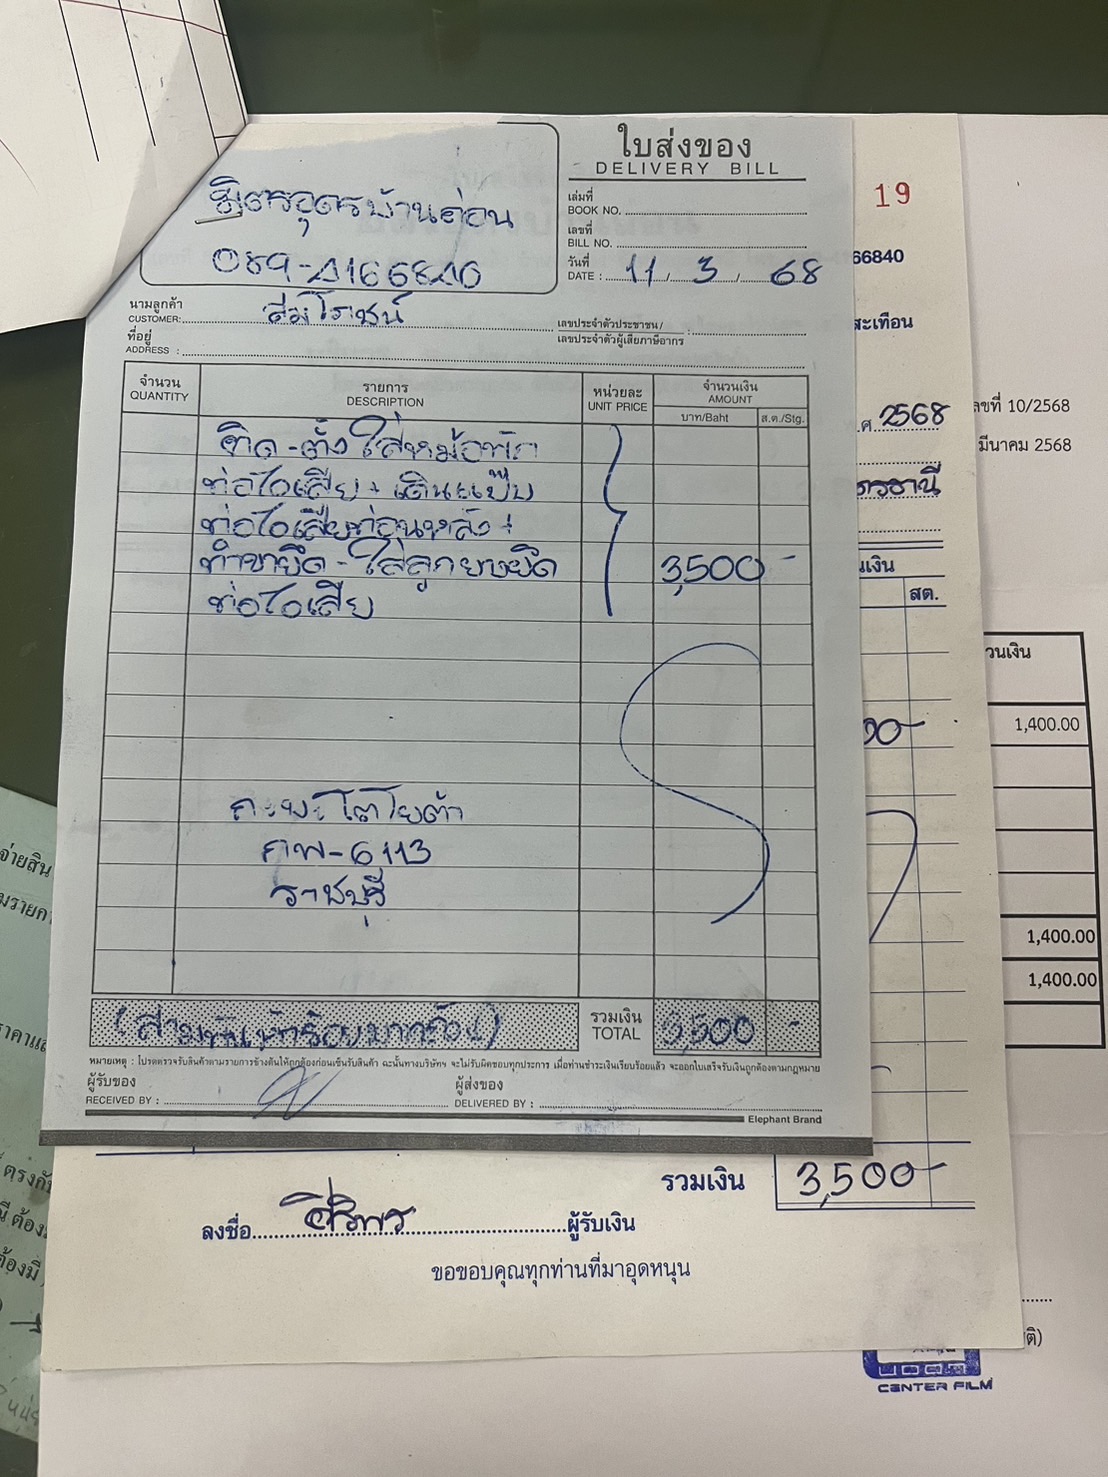 ใบส่งของ
DELIVERY BILL
มิตรอุดรบ้านค่อน
089-4166840
เล่มที่
BOOK NO.
เลขที่
BILL NO.
วันที่
DATE : 11 / 3 / 68
นามลูกค้า
CUSTOMER: สมโรชน์
เลขประจำตัวประชาชน/
เลขประจำตัวผู้เสียภาษีอากร :
ที่อยู่
ADDRESS :
จำนวน รายการ หน่วยละ จำนวนเงิน
QUANTITY DESCRIPTION UNIT PRICE AMOUNT
บาท/Baht ส.ต./Stg.
ติด-ตั้งใส่หม้อพัก
ท่อไอเสีย + เดินแป๊บ
ท่อไอเสียท่อนหลัง +
ทำขายึด - ใส่ลูกยางยึด 3,500 -
ท่อไอเสีย
กะบะโตโยต้า
6113
ราชบุรี
(สามพันห้าร้อยบาทถ้วน) รวมเงิน 3,500 -
TOTAL
หมายเหตุ : โปรดตรวจรับสินค้าตามรายการข้างต้นให้ถูกต้องก่อนเซ็นรับสินค้า ฉะนั้นทางบริษัทฯ จะไม่รับผิดชอบทุกประการ เมื่อท่านชำระเงินเรียบร้อยแล้ว จะออกใบเสร็จรับเงินถูกต้องตามกฎหมาย
ผู้รับของ
RECEIVED BY :
ผู้ส่งของ
DELIVERED BY :
Elephant Brand
19
66840
สะเทือน
ศ. 2568
ดรธานี
เงิน
สต.
00-
รวมเงิน 3,500-
ลงชื่อ ศิริพร ผู้รับเงิน
ขอขอบคุณทุกท่านที่มาอุดหนุน
ลขที่ 10/2568
มีนาคม 2568
วนเงิน
1,400.00
1,400.00
1,400.00
ติ)
CENTER FILM
จ่ายสิน
มรายกา
ราคาแล
ตรงกับ
ต้อง
ต้องมี